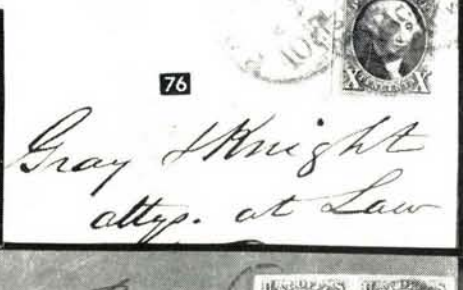 10
76
X X
Gray & Knight
attys. at Law